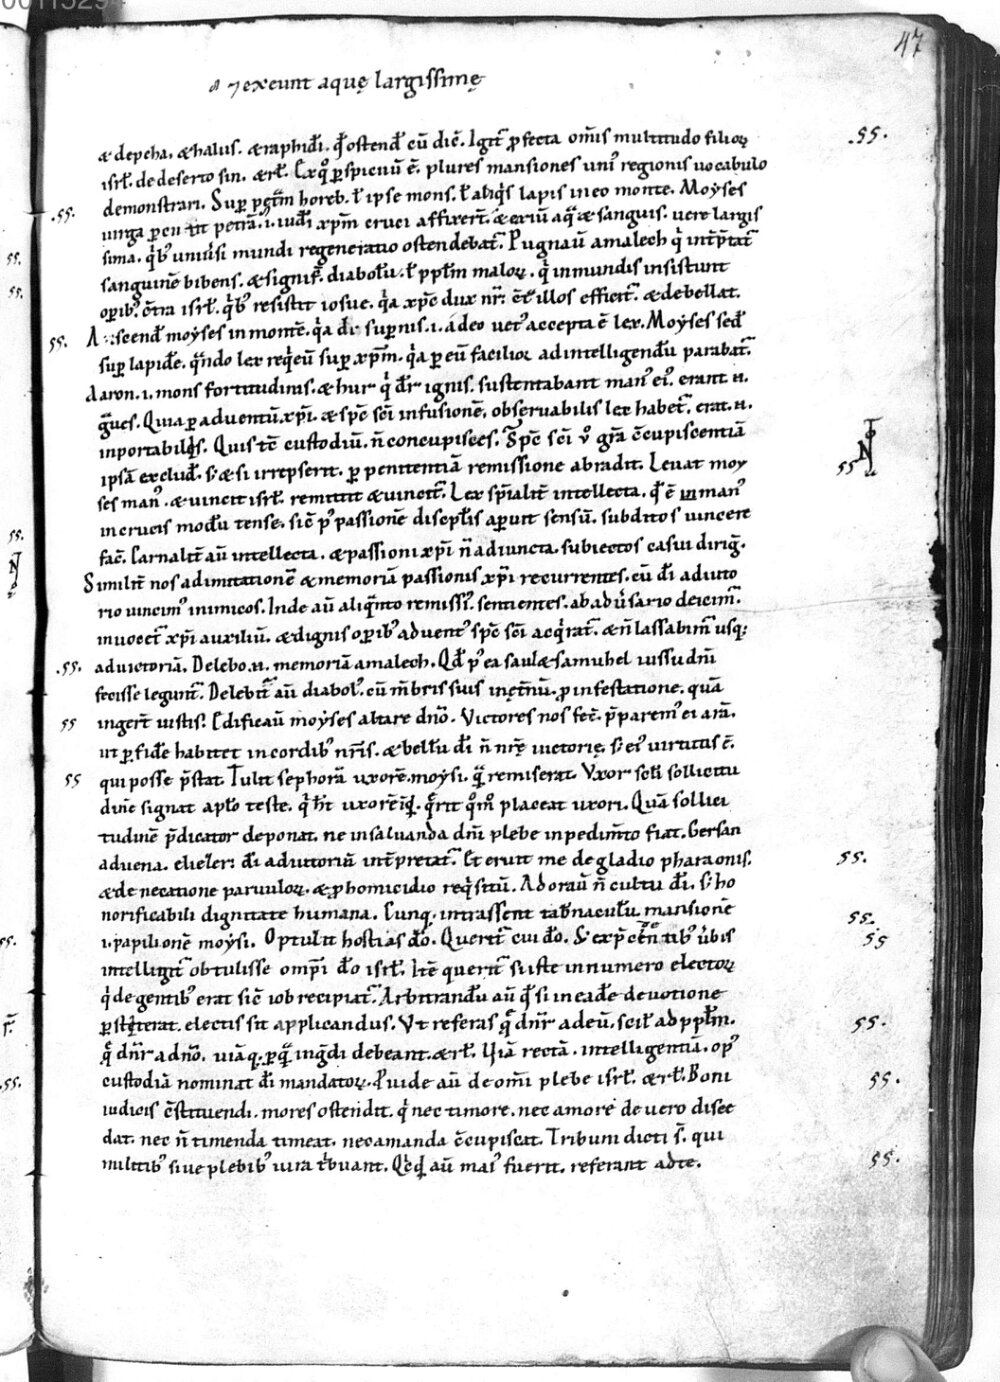 0011529
47
⁊ exeunt aquę largissimę
& depcha, & halus. & raphidī. qđ ostendē cū diē. Igit̄ ꝓfecta om̄is multitudo filioꝝ
isrł. de deserto sin. & rł. Ex qͦ ꝑspicuū ē. plures mansiones uni᷒ regionis uocabulo
demonstrari. Suꝑ horeb. ł ipse mons. ł aliqͥs lapis in eo monte. Moẏses
uirga petrā .i. iudī xp̄m cruci affixer̄t. & exiuit aqͣ & sanguis. uere largis
sima. qͥb᷒ uniuͥsi mundi regeneratio ostendebat̄. Pugnauit amalech qͥ int̄p̄tat̄
sanguinē bibens. & signif̄. diabolū. ł pp̄lm maloꝝ. qͥ in mundis insistunt
oꝑib᷒. c̄tra isrł. qͥb᷒ resistit iosue. qͥa xp̄c dux nr̄. illos efficit̄. & debellat.
Ascendē moẏses in montē. qͥa dī suꝑnis .i. a deo uet᷒ accepta ē lex. Moẏses sed̄
suꝑ lapidē. qͣndo lex reqͥeuit suꝑ xp̄m. qͥa ꝑ eū facilior ad intelligendū parabat̄.
Aaron .i. mons fortitudinis. & hur qͥ dr̄ ignis. sustentabant man᷒ ei᷒. erant .n.
gͣues. Quia ꝑ aduentū xp̄i. & sp̄c sc̄i infusionē. obseruabilis lex habet̄. erat .n.
inportabilis. Quis tē custodiuit. n̄ concupisces. Sp̄c sc̄i u͛ gr̄a c̄cupiscentiā
ipsā excludit. s; & si irrepserit. ꝑ penitentiā remissione abradit. Leuat moẏ
ses man᷒. & uincit isrł. remittit & uincit̄. Lex sp̄ialit̄ intellecta. qͥ ē in man᷒
in crucis modū tense. sic̄ p᷒ passionē discipłis aꝑuit sensū. subditos uincere
fac̄. Carnalit̄ aū intellecta. & passioni xp̄i n̄ adiuncta. subiectos casui diriḡ.
Similit̄ nos ad imitationē & memoriā passionis xp̄i recurrentes. cū dī adiuto
rio uincim᷒ inimicos. Inde aū aliqͣnto remissi᷒ sentientes. ab aduͥsario deicim̄.
inuocet̄ xp̄i auxiliū. & dignis oꝑib᷒ aduent᷒ sp̄c sc̄i acqͥrat̄. & n̄ lassabim̄ usqꝫ
ad uictoriā. Delebo .n. memoriā amalech. Qđ p᷒ ea saul & samuhel iussu dn̄i
fecisse legunt̄. Delebit̄ aū diabol᷒. cū m̄bris suis in ęt̄nū. ꝓ infestatione. quā
ingerit iustis. Edificauit moẏses altare dn̄o. Victores nos fec̄. p̄parem᷒ ei arā.
ut ꝑ fidē habitet in cordib᷒ nr̄is. & bellū dī n̄ nr̄ę uictorię. s; ei᷒ uirtutis ē.
qui posse p̄stat. Tulit sephorā uxorē moẏsi. qͣ remiserat. Vxor scłi sollicitu
dinē signat apło teste. qͥ h̄t uxorē inqͥt. qͣrit qͦmͦ placeat uxori. Quā sollici
tudinē p̄dicator deponat. ne in saluanda dn̄i plebe inpedim̄to fiat. Gersan
aduena. eliezer: dī adiutoriū int̄pretat̄. Et eruit me de gladio pharaonis.
& de necatione paruuloꝝ. & ꝓ homicidio reqͥsitū. Adorauit n̄ cultu dī. s; ho
norificabili dignitate humana. Cunqꝫ intrassent tab̄naculū. mansionē
.i. papilionē moẏsi. Optulit hostias dō. Querit̄ cui dō. uͥbis
intelligit̄ obtulisse omp̄i dō isrł. Itē querit̄ si iste in numero electoꝝ
qͥ de gentib᷒ erat sic̄ iob recipiat̄. Arbitrandū aū qđ si in eadē deuotione
ꝑstiterat. electis sit applicandus. Vt referas qͣ dn̄r ad eū. scił ad pp̄lm.
qͣ dn̄r a dn̄o. uiāqꝫ ꝑ qͣ inḡdi debeant. & rł. Viā rectā. intelligentiā. op᷒
custodiā nominat dī mandatoꝝ. Puide aū de om̄i plebe isrł. & rł. Boni
iudicis c̄stituendi. mores ostendit. qͥ nec timore. nec amore de uero disce
dat. nec n̄ timenda timeat. nec amanda c̄cupiscat. Tribuni dicti s̄. qui
militib᷒ siue plebib᷒ iura tͥbuant. Qͥcqͥd aū mai᷒ fuerit. referant ad te.